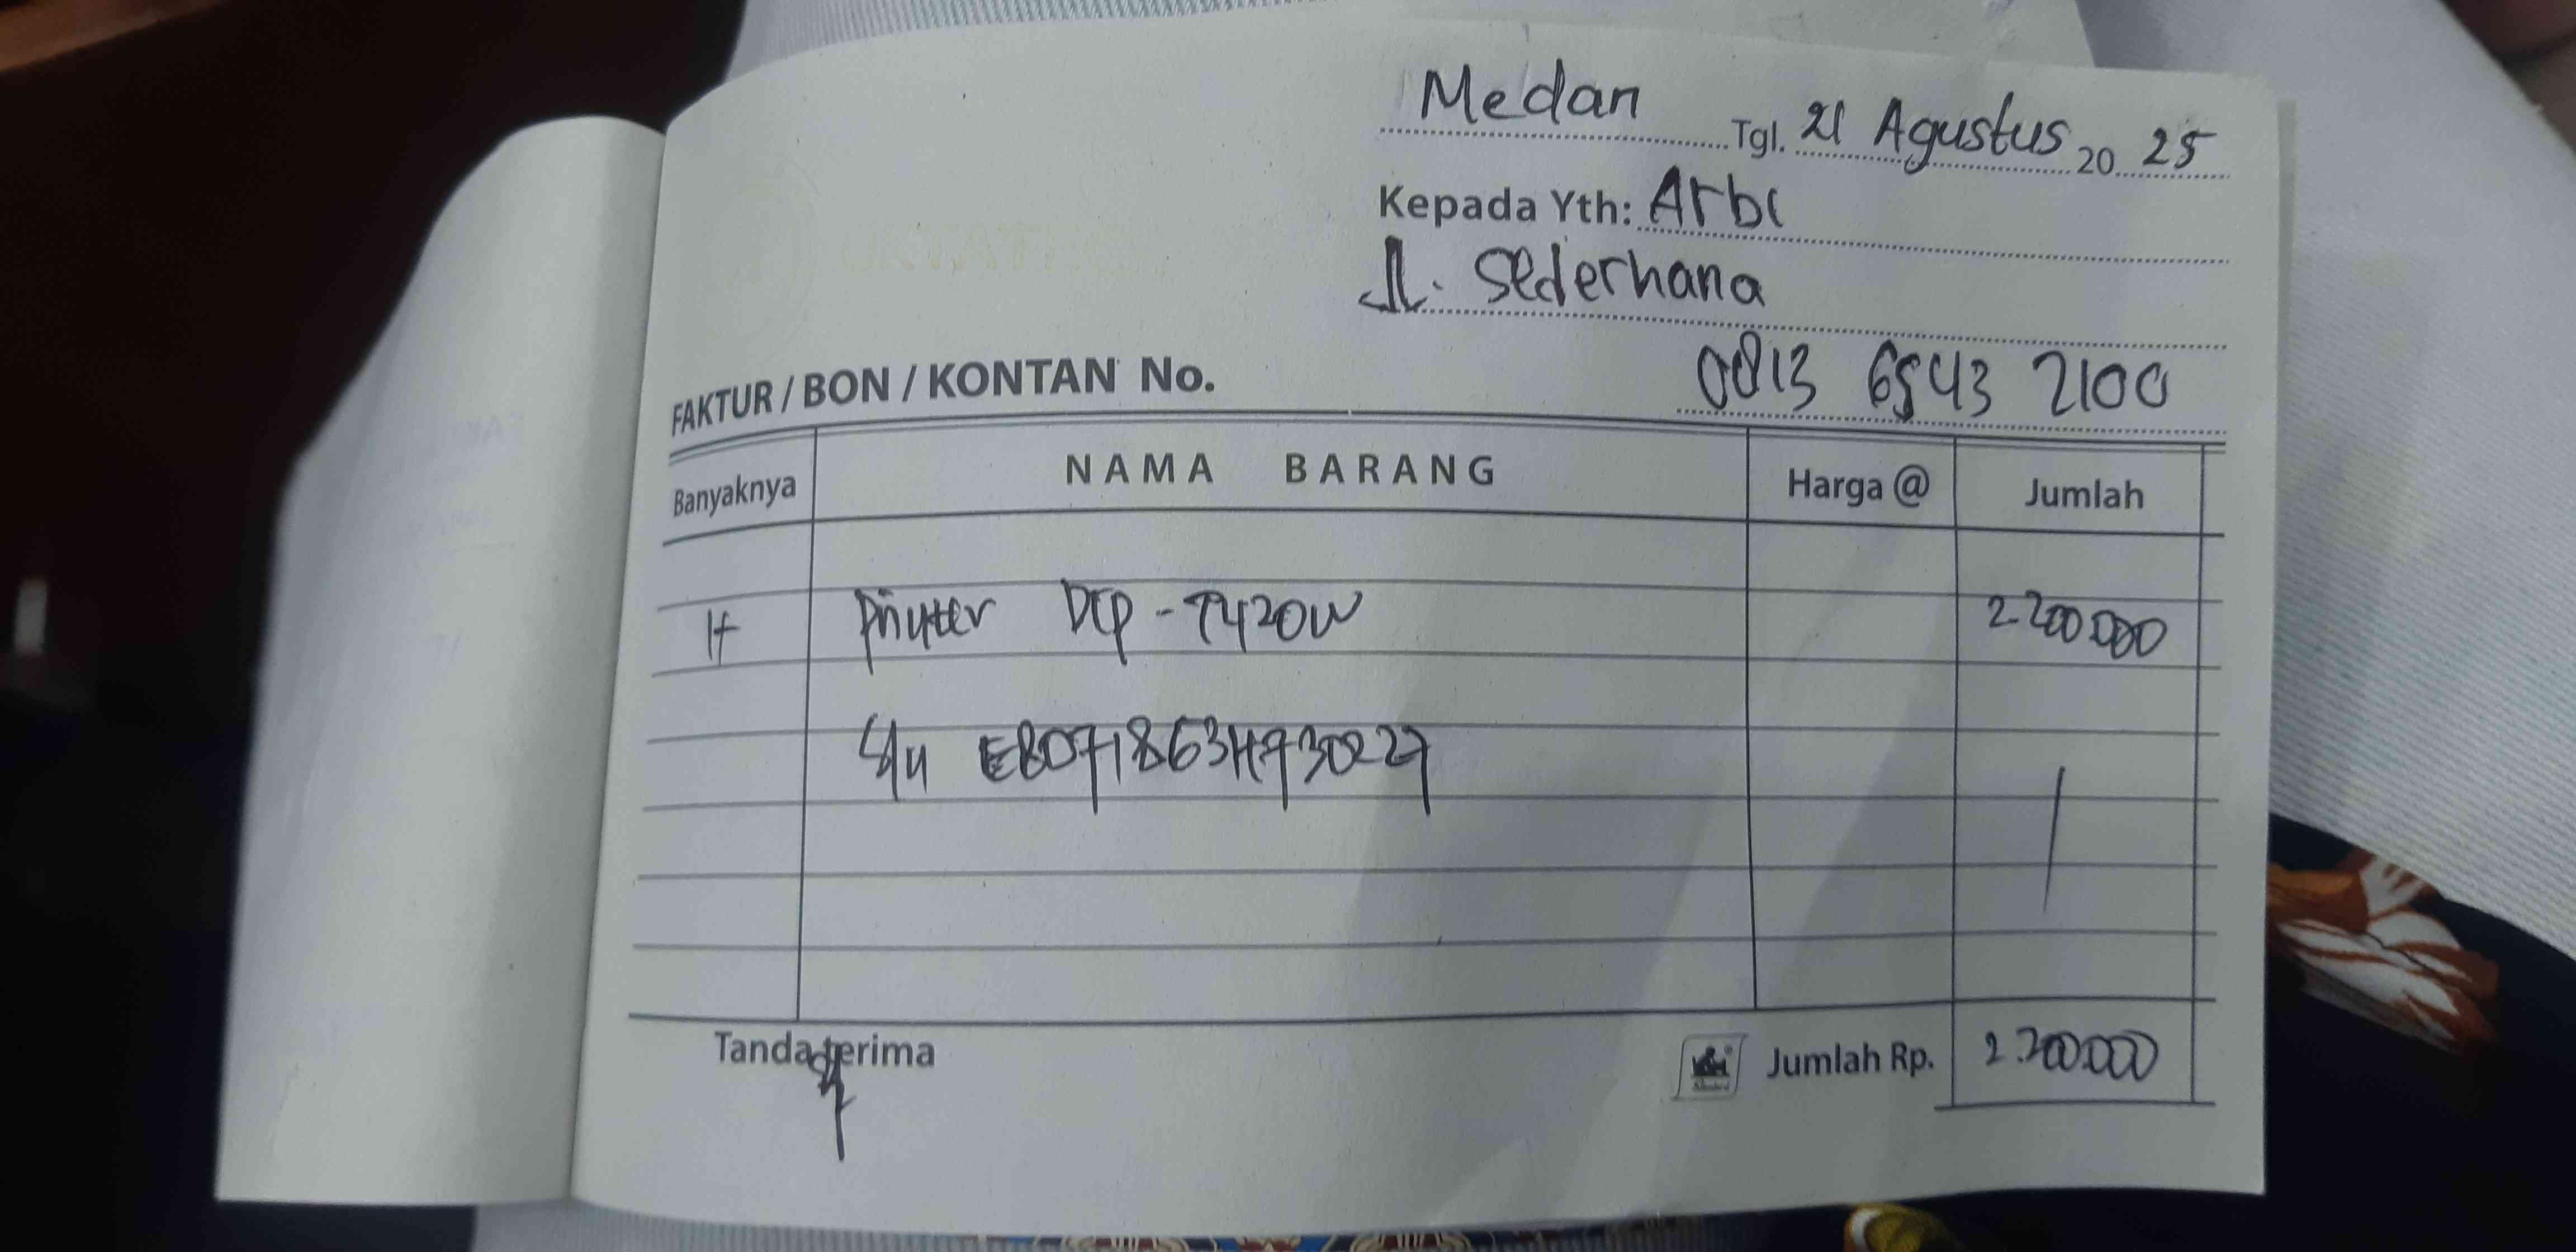 Medan Tgl. 21 Agustus 2025
Kepada Yth: Arbi
Jl. Sederhana
0813 6543 2100
FAKTUR / BON / KONTAN No.
Banyaknya NAMA BARANG Harga @ Jumlah
1 Printer DCP-T420W 2.200.000
S/N
Tanda terima Jumlah Rp. 2.200.000